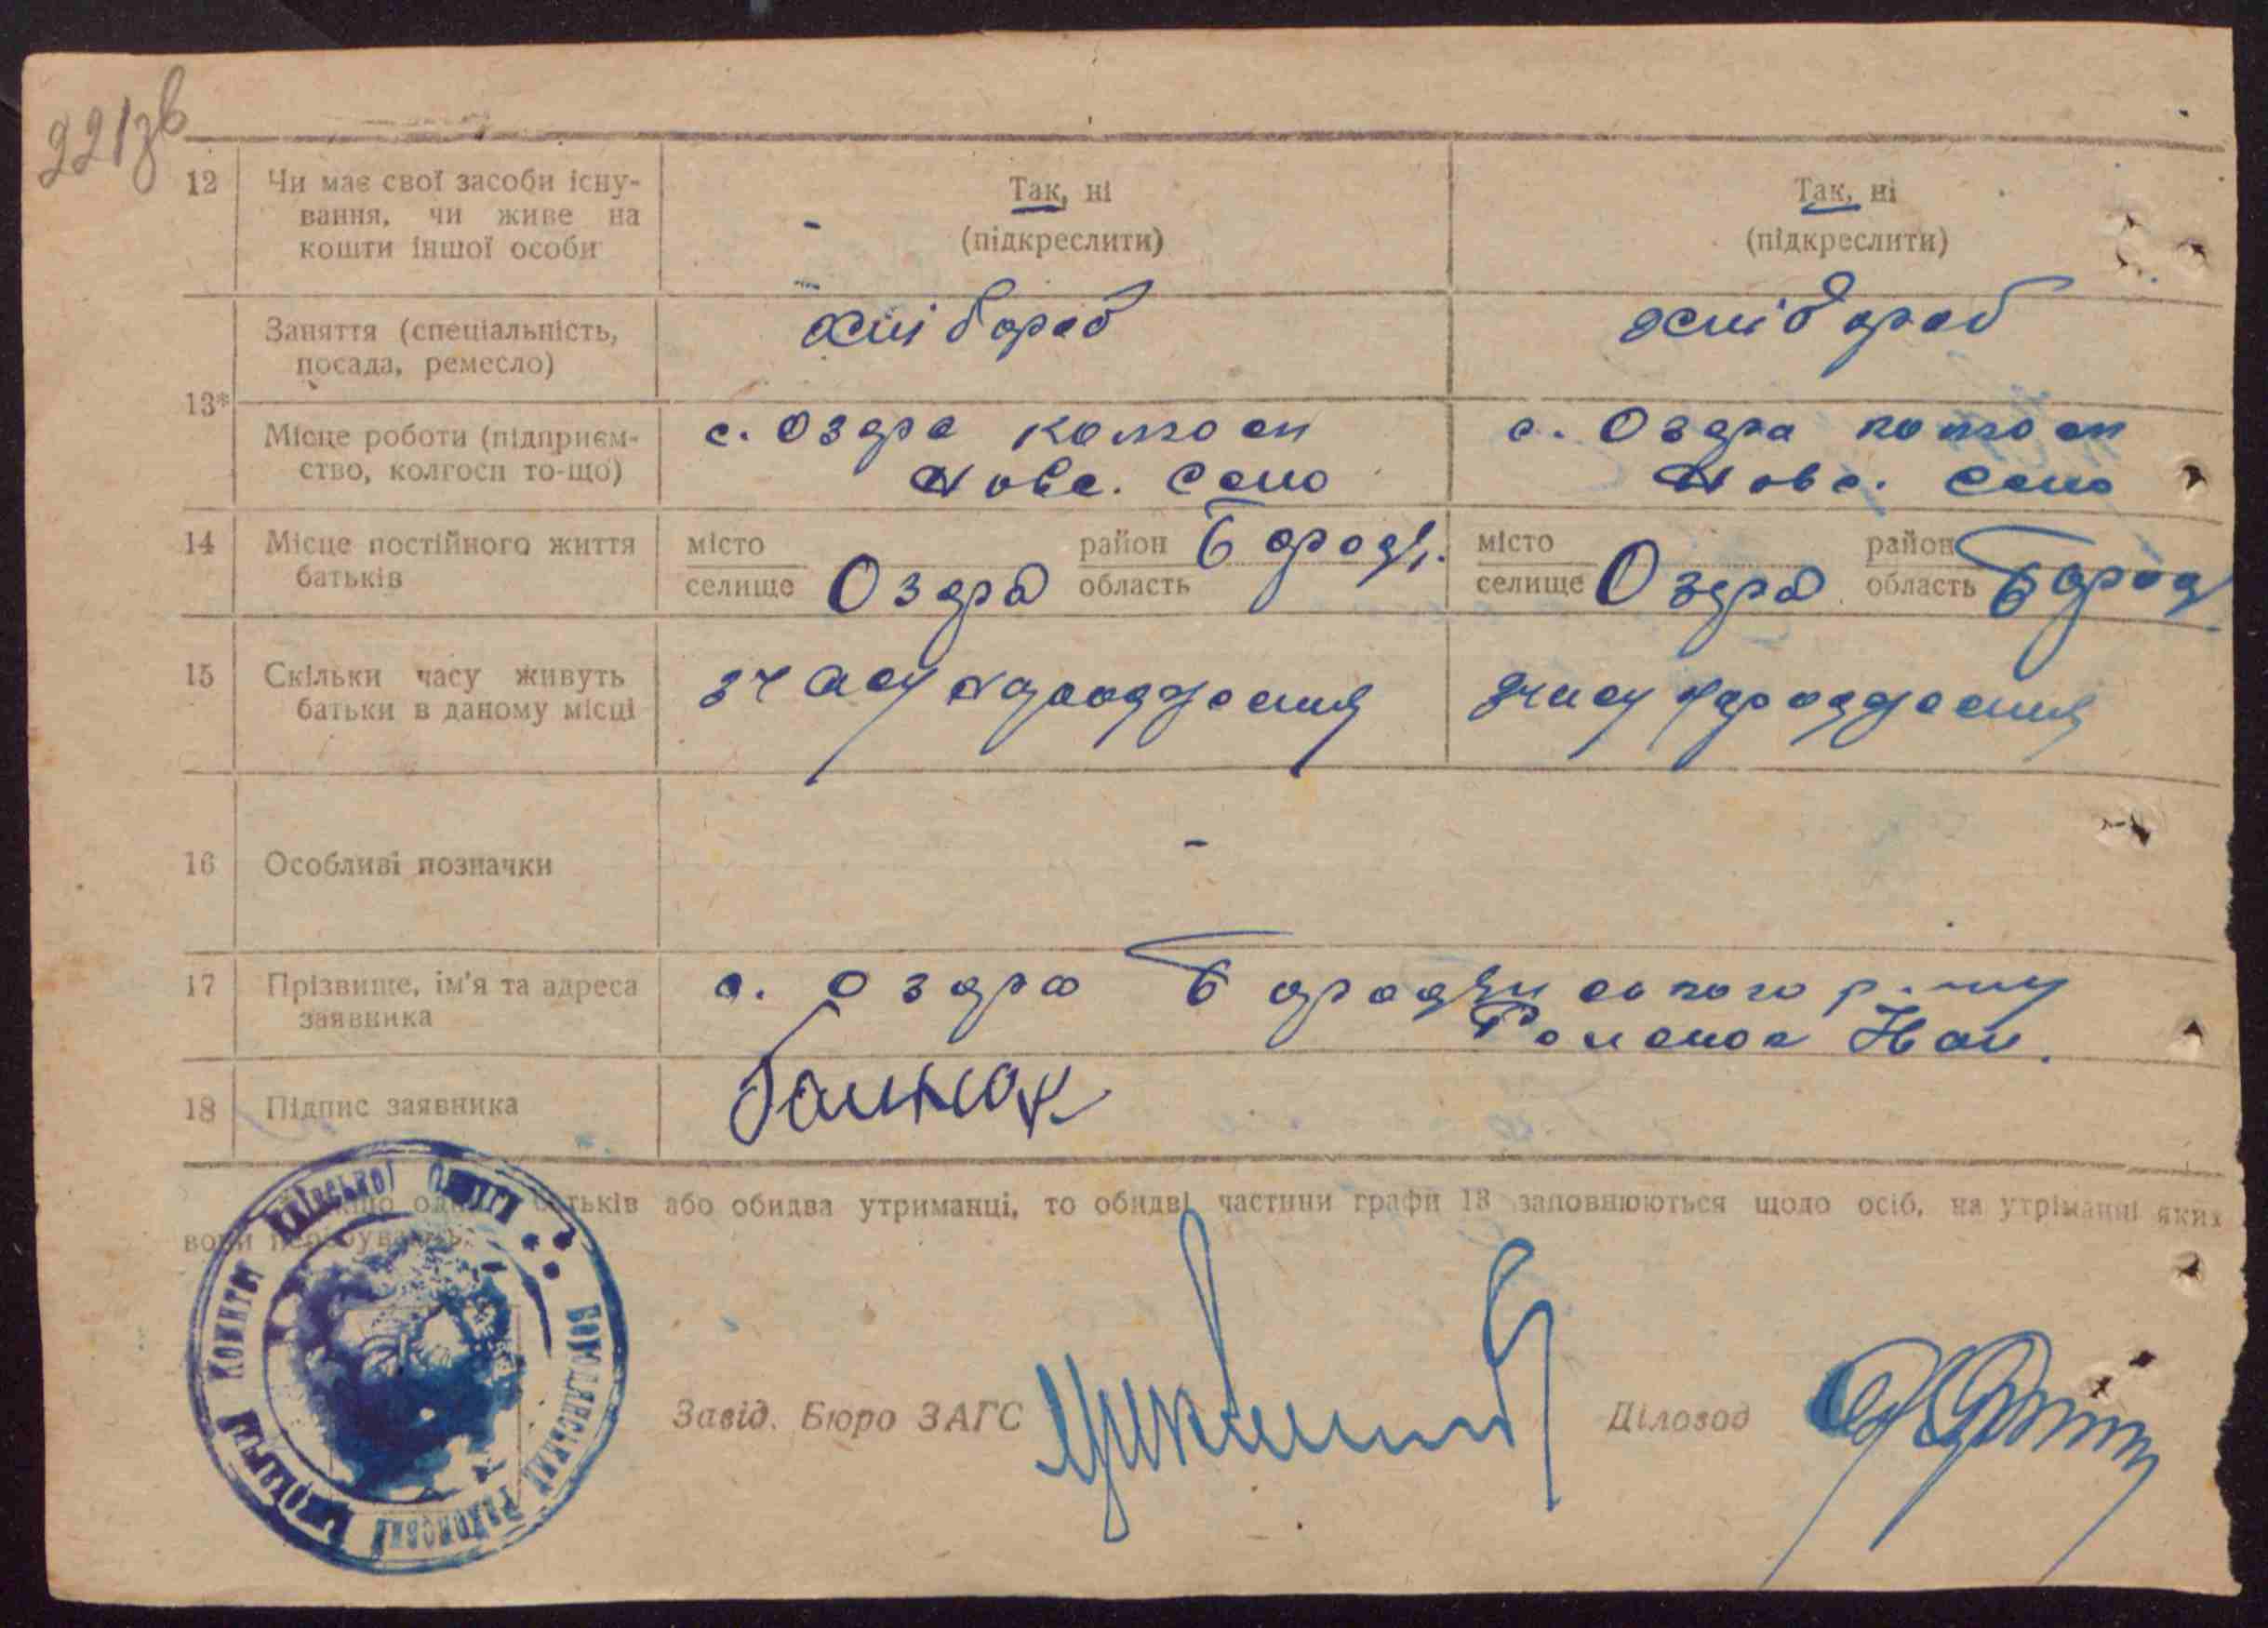 221зв
12 Чи має свої засоби існу-
вання, чи живе на
кошти іншої особи
Так, ні
(підкреслити)
Так, ні
(підкреслити)
13*
Заняття (спеціальність,
посада, ремесло)
хлібороб
хлібороб
Місце роботи (підприєм-
ство, колгосп то-що)
с. Оздра колгосп
Нове. Село
с. Оздра колгосп
Нове. Село
14 Місце постійного життя
батьків
місто
селище Оздра
район
область Бородя.
місто
селище Оздра
район
область Бород
15 Скільки часу живуть
батьки в даному місці
з часу народження
з часу народження
16 Особливі позначки
-
17 Прізвище, ім'я та адреса
заявника
с. Оздра
18 Підпис заявника
батьків або обидва утриманці, то обидві частини графи 13 заповнюються щодо осіб, на утріманні яких
вони перебувають.
Київської
Бородянський Районовий
Комітет
Завід. Бюро ЗАГС
Діловод